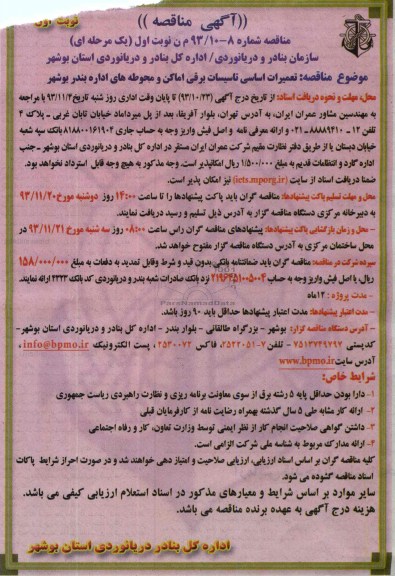 نوبت اول
((آگهی مناقصه ))
مناقصه شماره ۸-۹۳/۱۰ م ن نوبت اول (یک مرحله ای)
سازمان بنادر و دریانوردی/ اداره کل بنادر و دریانوردی استان بوشهر
موضوع مناقصه: تعمیرات اساسی تاسیسات برقی اماکن و محوطه های اداره بندر بوشهر
محل، مهلت و نحوه دریافت اسناد: از تاریخ درج آگهی (۹۳/۱۰/۲۳) تا پایان وقت اداری روز شنبه تاریخ۹۳/۱۱/۴ با مراجعه
به مهندسین مشاور عمران ایران، به آدرس تهران، بلوار آفریقا، بعد از پل میرداماد خیابان تابان غربی ـ پلاک ۴
تلفن ۱۲ ـ ۸۸۸۸۹۴۱۰ ـ۰۲۱ و ارائه معرفی نامه و اصل فیش واریز وجه به حساب جاری ۸۱۸۸۰۰۱۶۱۹۰۴ بانک سپه شعبه
خیابان دبستان یا از طریق دفتر نظارت مقیم شرکت عمران ایران مستقر در اداره کل بنادر و دریانوردی استان بوشهر ـ جنب
اداره گارد و انتظامات قدیم به مبلغ ۱/۵۰۰/۰۰۰ ریال امکانپذیر است. وجه مذکور به هیچ وجه قابل استرداد نخواهد بود.
ضمنا دریافت اسناد از سایت (iets.mporg.ir) نیز امکان پذیر است.
محل و مهلت تسلیم پاکت پیشنهادها: مناقصه گران باید پاکت پیشنهادها را تا ساعت ۱۴:۰۰ روز دوشنبه مورخ ۹۳/۱۱/۲۰
به دبیرخانه مرکزی دستگاه مناقصه گزار به آدرس ذیل تسلیم و رسید دریافت نمایند.
- محل و زمان بازگشایی پاکت پیشنهادها: پیشنهادهای مناقصه گران راس ساعت ۰۸:۰۰ روز سه شنبه مورخ ۹۳/۱۱/۲۱ در
محل ساختمان مرکزی به آدرس دستگاه مناقصه گزار مفتوح خواهد شد.
سپرده شرکت در مناقصه: مناقصه گران باید ضمانتنامه بانکی بدون قید و شرط وقابل تمدید به دفعات به مبلغ ۱۵۸/۰۰۰/۰۰۰
ریال، یا اصل فیش واریز وجه به حساب ۲۱۹۶۴۵۱۰۵۰۰۴ نزد بانک صادرات شعبه بندر و دریانوردی کد بانک ۲۳۲۳ ارائه نمایند.
- مدت پروژه : ۱۲ماه
- مدت اعتبار پیشنهادها: مدت اعتبار پیشنهادها حداقل باید ۹۰ روز باشد.
- آدرس دستگاه مناقصه گزار: بوشهر - بزرگراه طالقانی - بلوار بندر - اداره کل بنادر و دریانوردی استان بوشهر-
کدپستی ۷۵۱۳۷۴۹۷۹۷ - تلفن ۷-۲۵۲۲۰۵۱، فاکس ۲۵۳۰۰۷۲، پست الکترونیک info@bpmo.ir ،
آدرس سایت www.bpmo.ir
شرایط خاص:
۱- دارا بودن حداقل پایه ۵ رشته برق از سوی معاونت برنامه ریزی و نظارت راهبردی ریاست جمهوری
۲- ارائه کار مشابه طی ۵ سال گذشته بهمراه رضایت نامه از کارفرمایان قبلی
۳- داشتن گواهی صلاحیت انجام کار از نظر ایمنی توسط وزارت تعاون، کار و رفاه اجتماعی
۴- ارائه مدارک مربوط به شناسه ملی شرکت الزامی است.
کلیه مناقصه گران بر اساس اسناد ارزیابی، ارزیابی صلاحیت و امتیاز دهی خواهند شد و در صورت احراز شرایط پاکات
اسناد مناقصه گشوده می شود.
سایر موارد بر اساس شرایط و معیارهای مذکور در اسناد استعلام ارزیابی کیفی می باشد.
هزینه درج آگهی به عهده برنده مناقصه می باشد.
اداره کل بنادر دریانوردی استان بوشهر